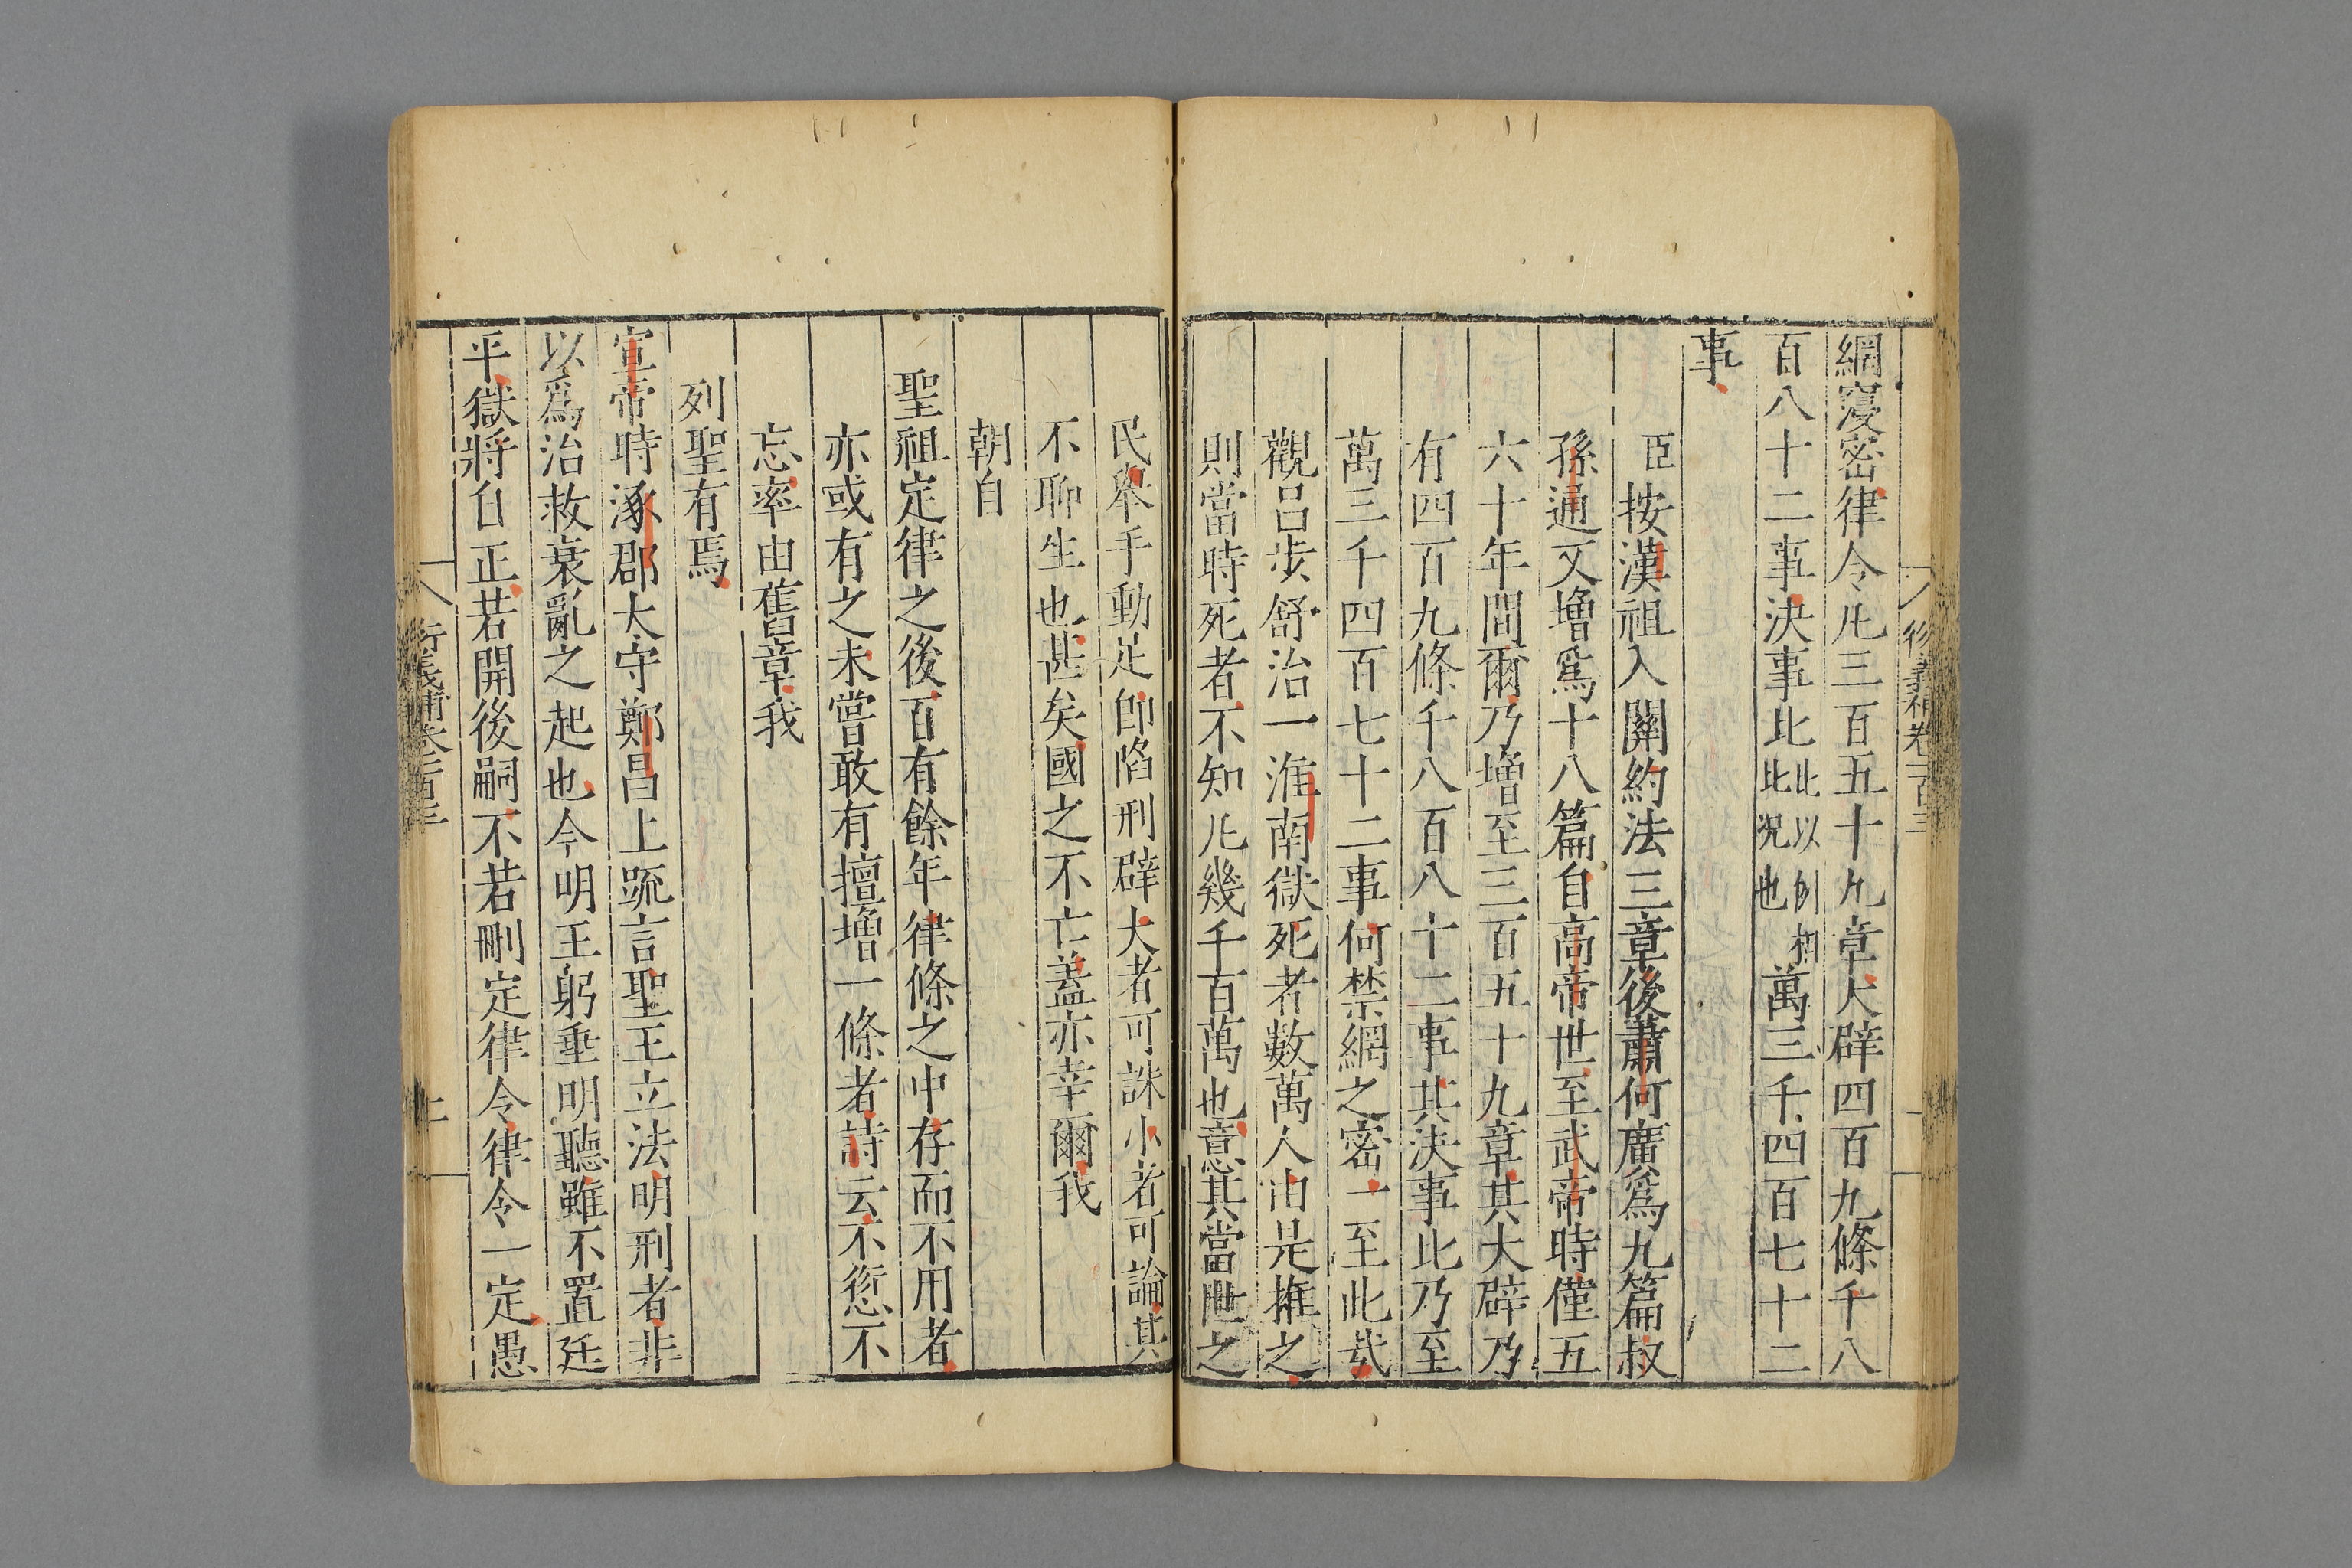 綱寖密律令凡三百五十九章大辟四百九條千八
百八十二事決事比此以例相比况也萬三千四百七十二
事
臣按漢祖入關約法三章後蕭何廣爲九篇叔
孫通又增爲十八篇自高帝世至武帝時僅五
六十年間爾乃增至三百五十九章其大辟乃
有四百九條千八百八十二事其決事比乃至
萬三千四百七十二事何禁網之密一至此㢤
觀吕步舒治一淮南獄死者數萬人由是推之
則當時死者不知凡幾千百萬也意其當世之
民舉手動足即陷刑辟大者可誅小者可論其
不聊生也甚矣國之不亡盖亦幸爾我
朝自
聖祖定律之後百有餘年律條之中存而不用者
亦或有之未嘗敢有擅增一條者詩云不愆不
忘率由舊章我
列聖有焉
宣帝時涿郡太守鄭昌上疏言聖王立法明刑者非
以爲治救衰亂之起也今明王躬垂明聽雖不置廷
平獄將自正若開後嗣不若刪定律令律令一定愚
衍義補卷一百三